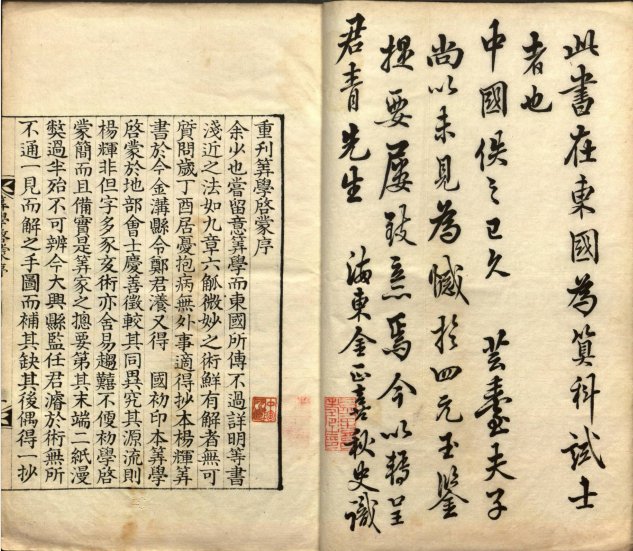 此書在東國為算科試士
者也
中國佚之已久 芸臺夫子
尚以未見為憾於四元玉鑒
提要屢致意焉今以轉呈
君青先生 海東金正喜秋史識
重刋筭學啓蒙序
余少也嘗留意筭學而東國所傳不過詳明等書
淺近之法如九章六觚微妙之術鮮有解者無可
質問歲丁酉居憂抱病無外事適得抄本楊輝筭
書於今金溝縣令鄭君瀁又得 國初印本筭學
啓蒙於地部會士慶善徵較其同異究其源流則
楊輝非但字多豕亥術亦舍易趨難不便初學啓
蒙簡而且備實是筭家之摠要第其末端二紙漫
獘過半殆不可辨今大興縣監任君濬於術無所
不通一見而解之手圖而補其缺其後偶得一抄
筭學啓蒙序